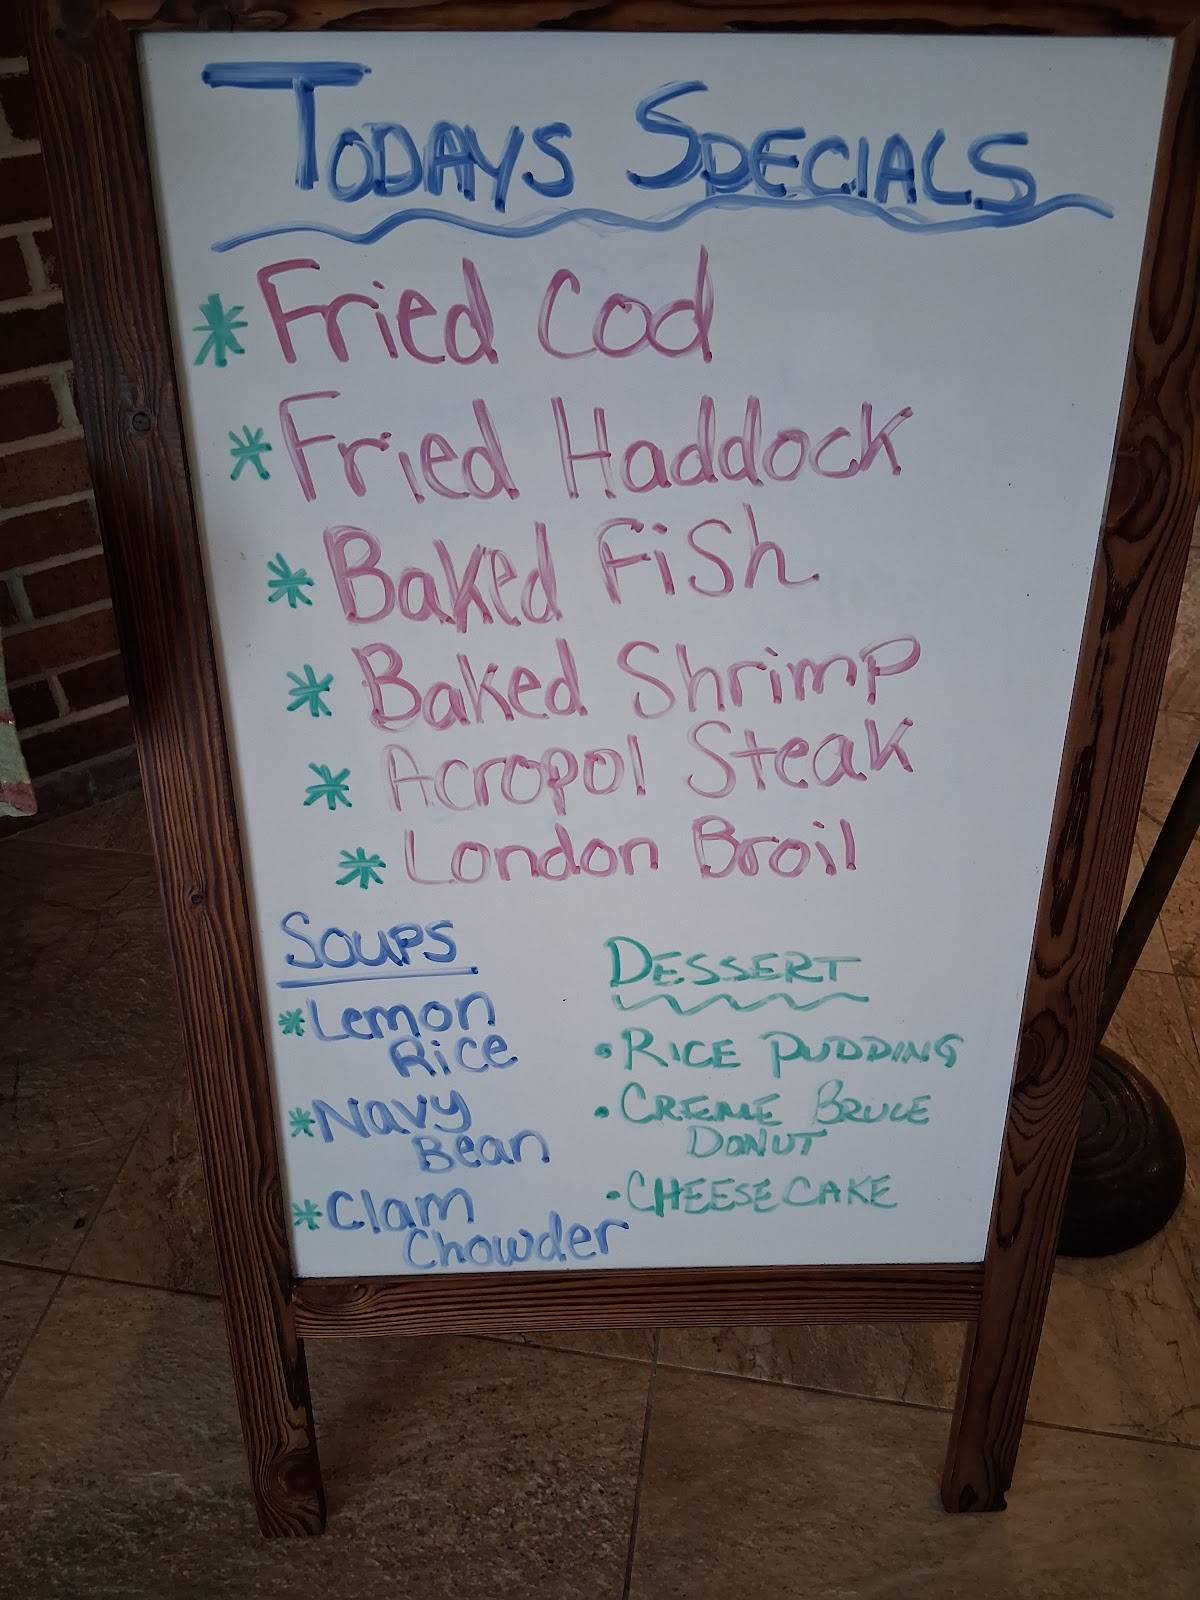 TODAYS SPECIALS
* Fried Cod
* Fried Haddock
* Baked Fish
* Baked Shrimp
* Acropol Steak
* London Broil
SOUPS
* Lemon
Rice
* Navy
Bean
* Clam
Chowder
DESSERT
• RICE PUDDING
• CREME BRULE
DONUT
• CHEESECAKE